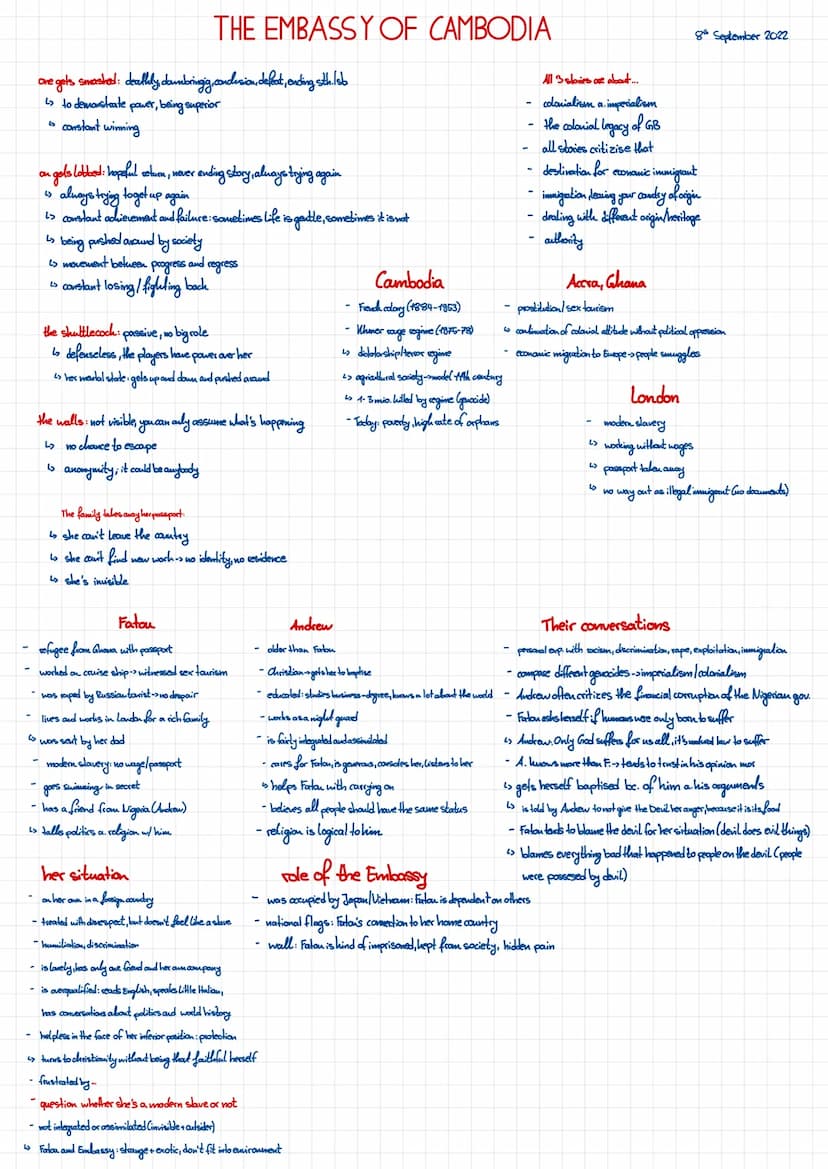 THE EMBASSY OF CAMBODIA
8th September 2022
one gets smashed: deathly, dambringig, conclusion, defeat, ending sth./sb
↳ to demonstrate power, being superior
↳ constant winning
on gets lobbed: hopeful return, never ending story, always trying again
↳ always trying to get up again
↳ constant achievement and failure: sometimes life is gentle, sometimes it is not
↳ being pushed around by society
↳ movement between progress and regress
↳ constant losing / fighting back
the shuttlecock: passive, no big role
↳ defenseless, the players have power over her
↳ her mental state: gets up and down and pushed around
the walls: not visible, you can only assume what's happening
↳ no chance to escape
↳ anonymity; it could be anybody
The family takes away her passport:
↳ she can't leave the country
↳ she can't find new work → no identity, no residence
↳ she's invisible
All 3 stories are about...
- colonialism a. imperialism
- the colonial legacy of GB
- all stories critizise that
- destination for economic immigrant
- immigration, leaving your country of origin
- dealing with different origin/heritage
- authority
Cambodia
- French colony (1884-1953)
- Khmer rouge regime (1975-78)
↳ dictatorship/terror regime
↳ agricultural society → model 11th century
↳ 1-3 mio. killed by regime (genocide)
- Today: poverty, high rate of orphans
Accra, Ghana
- prostitution / sex tourism
↳ continuation of colonial attitude without political oppression
- economic migration to Europe → people smugglers
London
- modern slavery
↳ working without wages
↳ passport taken away
↳ no way out as illegal immigrant (no documents)
Fatou
- refugee from Ghana with passport
- worked on cruise ship → witnessed sex tourism
- was raped by Russian tourist → no despair
- lives and works in London for a rich family
↳ was sent by her dad
- modern slavery: no wage/passport
- goes swimming in secret
- has a friend from Nigeria (Andrew)
↳ talks politics a. religion w/ him
Andrew
- older than Fatou
- Christian → gets her to baptise
- educated: studies business-degree, knows a lot about the world
- works as a night guard
- is fairly integrated and assimilated
- cares for Fatou, is generous, consoles her, listens to her
↳ helps Fatou with carrying on
- believes all people should have the same status
- religion is logical to him
Their conversations
- personal exp. with racism, discrimination, rape, exploitation, immigration
- compare different genocides → imperialism/colonialism
- Andrew often critizes the financial corruption of the Nigerian gov.
- Fatou asks herself if humans were only born to suffer
↳ Andrew: Only God suffers for us all, it's natural law to suffer
- A. knows more than F. → tends to trust in his opinion more
↳ gets herself baptised bc. of him a. his arguments
↳ is told by Andrew to not give the Devil her anger, because it is its food
- Fatou tends to blame the devil for her situation (devil does evil things)
↳ blames everything bad that happened to people on the devil (people
were possesed by devil)
her situation
- on her own in a foreign country
- treated with disrespect, but doesn't feel like a slave
- humiliation, discrimination
- is lonely, has only one friend and her own company
- is overqualified: reads English, speaks little Italian,
has conversations about politics and world history
- helpless in the face of her inferior position: protection
↳ turns to christianity without being that faithful herself
- frustrated by...
- question whether she's a modern slave or not
- not integrated or assimilated (invisible + outsider)
↳ Fatou and Embassy: strange + exotic, don't fit into environment
role of the Embassy
- was occupied by Japan/Vietnam: Fatou is dependent on others
- national flags: Fatou's connection to her home country
- wall: Fatou is kind of imprisoned, kept from society, hidden pain